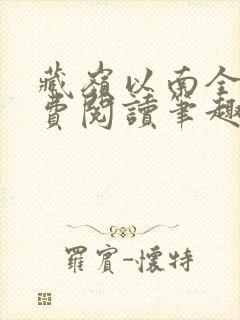 藏嶺以南全
費閱讀筆趣
羅賓-懷特